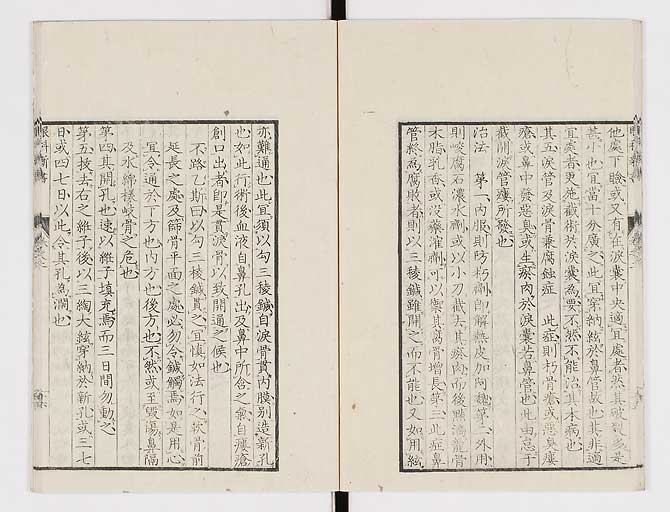 他處下瞼或又有在淚囊中央適宜處者然其破裂多是
甚小也宜當十分廣之此宜穿納絃於鼻管故也其非適
宜處者更施截術於淚囊為要不然不能治其本病也
其五淚管及淚骨兼腐蝕症　此症則朽骨瘡或惡臭瘻
瘡或鼻中發惡臭或生瘀肉於淚囊若鼻管也此由怠于
截開淚管瘻所發也
治法　第一內服則防朽劑即解熱皮加阿魏第二外用
則峻腐石濃水劑或以小刀截去其瘀肉而後點滴龍骨
木脂乳香或沒藥濯劑可以禦其窩骨增長第三此症鼻
管終為腐敗者則以三稜鍼雖開之而不能也又如用絃
亦難通也此宜須以勾三稜鍼自淚骨貫內膜別造新孔
也如此行術後血液自鼻孔出及鼻中所含之氣自瘻瘡
創口出者即是貫淚骨以致開通之候也
不路乙斯曰以勾三稜鍼貫之宜慎如法行之軟骨前
延長之處及篩骨平面之處必勿令鍼觸焉如是用心
宜令通於下方也內方也後方也不然或至毀傷鼻隔
及水綿樣峻骨之危也
第四其開孔也速以維子填充焉而三日間勿動之
第五拔去右之維子後以三綯大絃穿納於新孔或三七
日或四七日以此令其孔為濶也
眼科新書